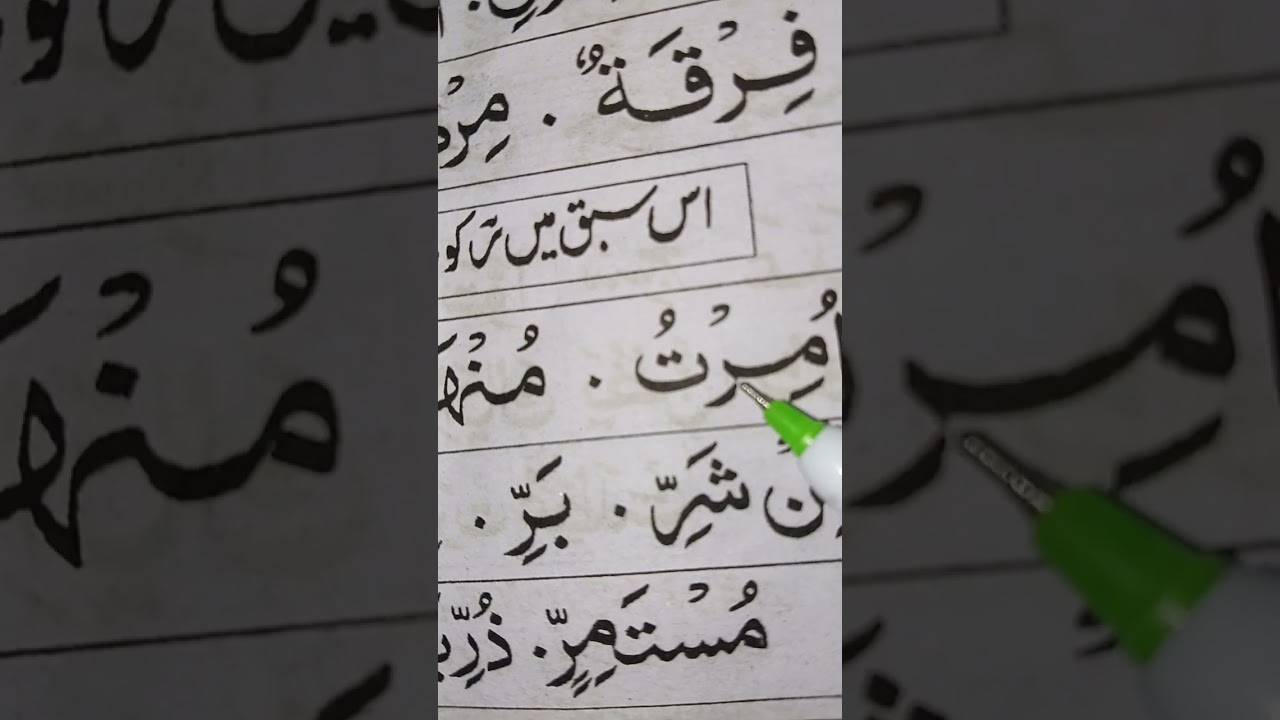 فِرْقَةٌ . مِرْ
اس سبق میں رَ کو
اُمِرْتُ . مُنْهَ
شَرِّ . بَرِّ .
مُسْتَمِرٍّ . ذُرِّيَّ